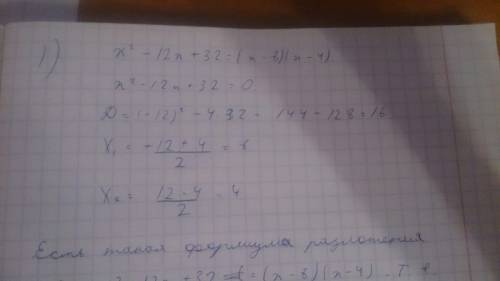 1)
x² - 12x + 32 = (x - 8)(x - 4).
x² - 12x + 32 = 0.
D = (-12)² - 4·32 = 144 - 128 = 16
X₁ = -12 + 4 / 2 = 8
X₂ = 12 - 4 / 2 = 4
Есть такая формула разложения
x² - 12x + 32 = (x - 8)(x - 4). Т. е.